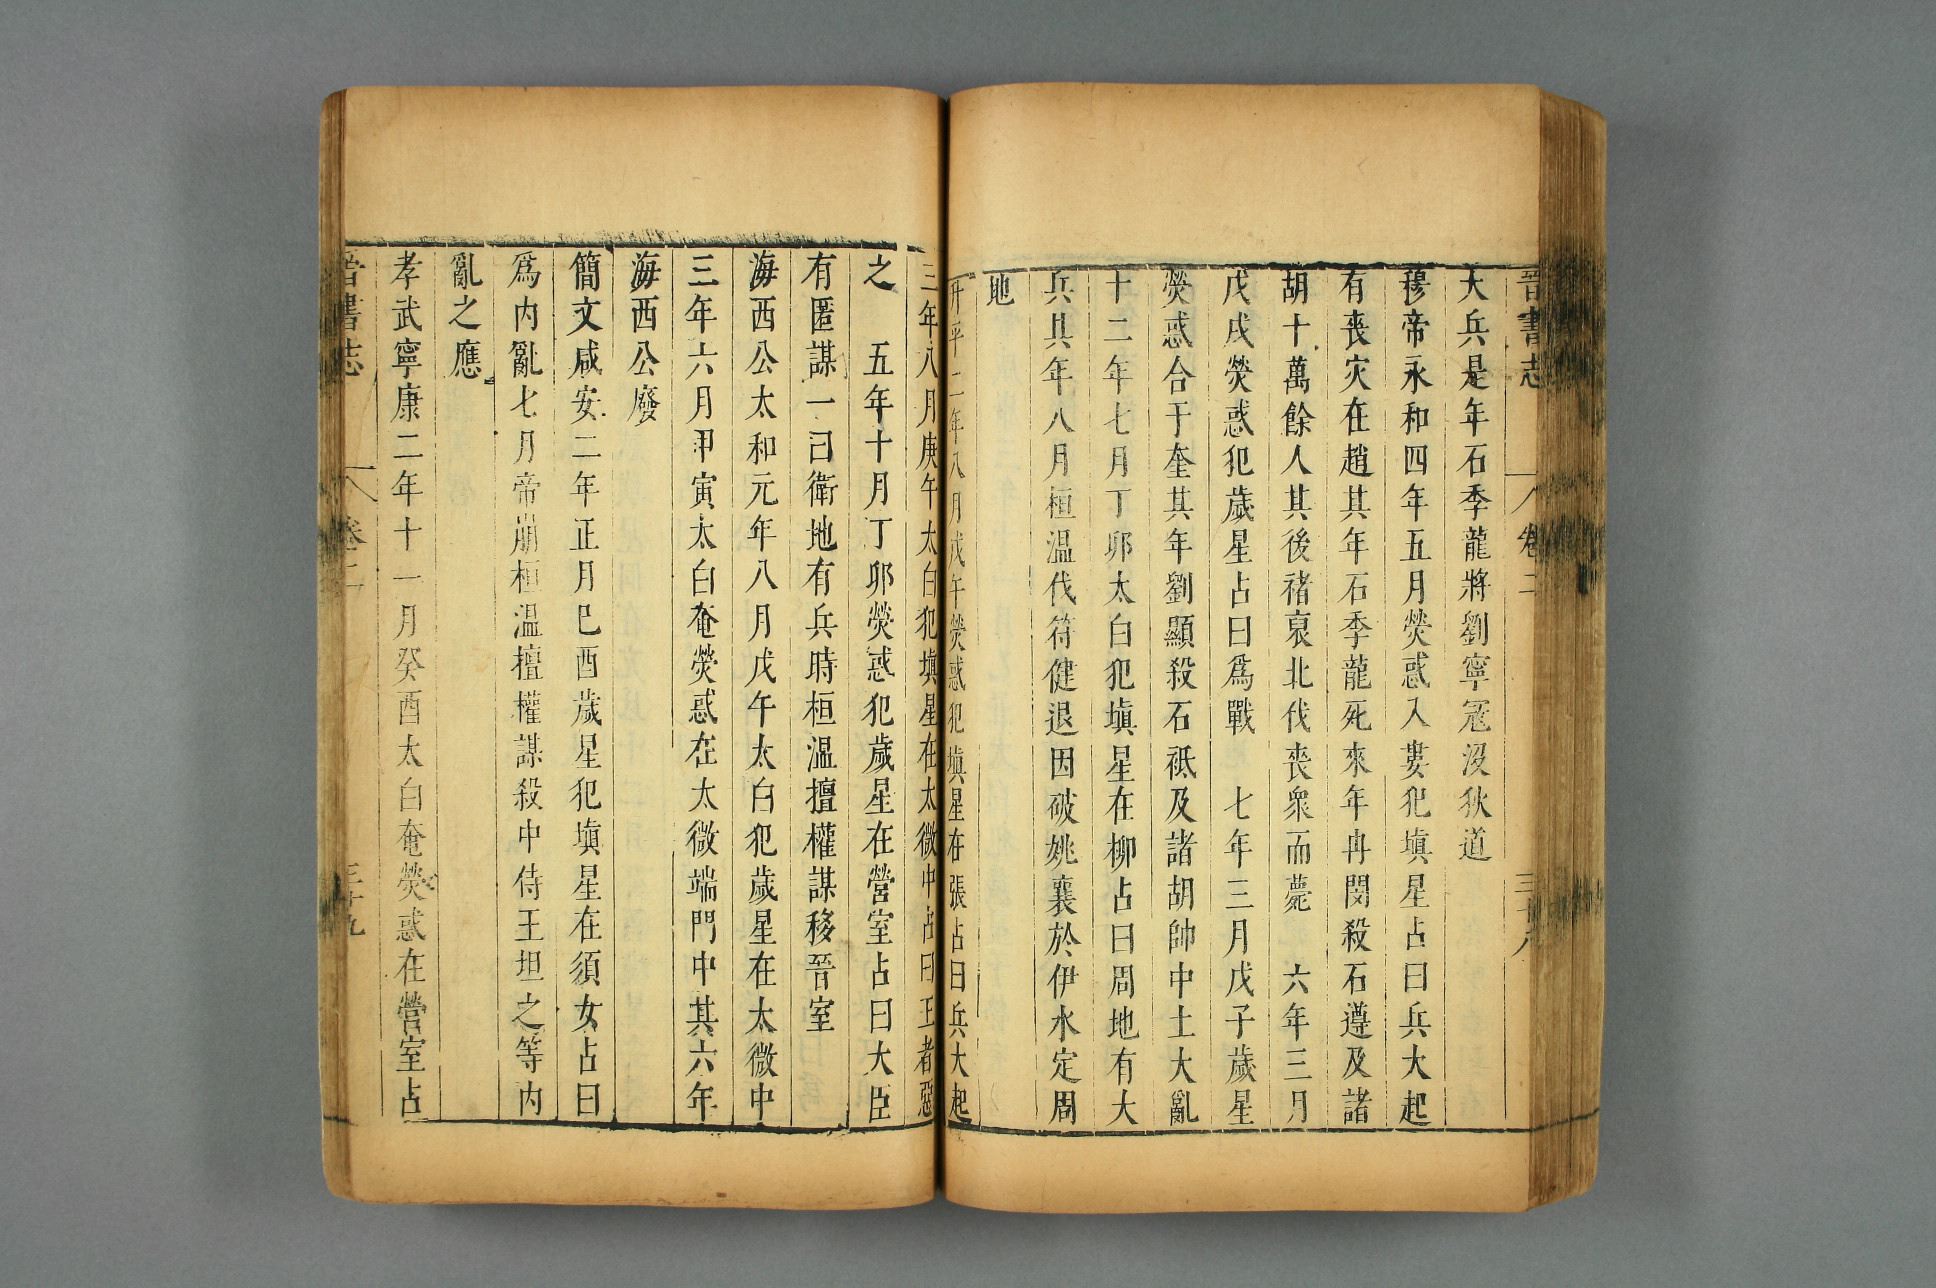 晉書志 卷二 三十八
大兵是年石季龍將劉寧寇沒狄道
穆帝永和四年五月熒惑入婁犯塡星占曰兵大起
有喪灾在趙其年石季龍死來年冉閔殺石遵及諸
胡十萬餘人其後禇裒北伐喪衆而薨 六年三月
戊戌熒惑犯歲星占曰爲戰 七年三月戊子歲星
熒惑合于奎其年劉顯殺石祗及諸胡帥中土大亂
十二年七月丁卯太白犯塡星在柳占曰周地有大
兵其年八月桓温伐苻健退因破姚襄於伊水定周
地
升平二年八月戊午熒惑犯塡星在張占曰兵大起
三年八月庚午太白犯塡星在太微中占曰王者惡
之 五年十月丁卯熒惑犯歲星在營室占曰大臣
有匿謀一曰衛地有兵時桓温擅權謀移晉室
海西公太和元年八月戊午太白犯歲星在太微中
三年六月甲寅太白奄熒惑在太微端門中其六年
海西公廢
簡文咸安二年正月巳酉歲星犯塡星在須女占曰
爲内亂七月帝崩桓温擅權謀殺中侍王坦之等内
亂之應
孝武寧康二年十一月癸酉太白奄熒惑在營室占
晉書志 卷二 三十九